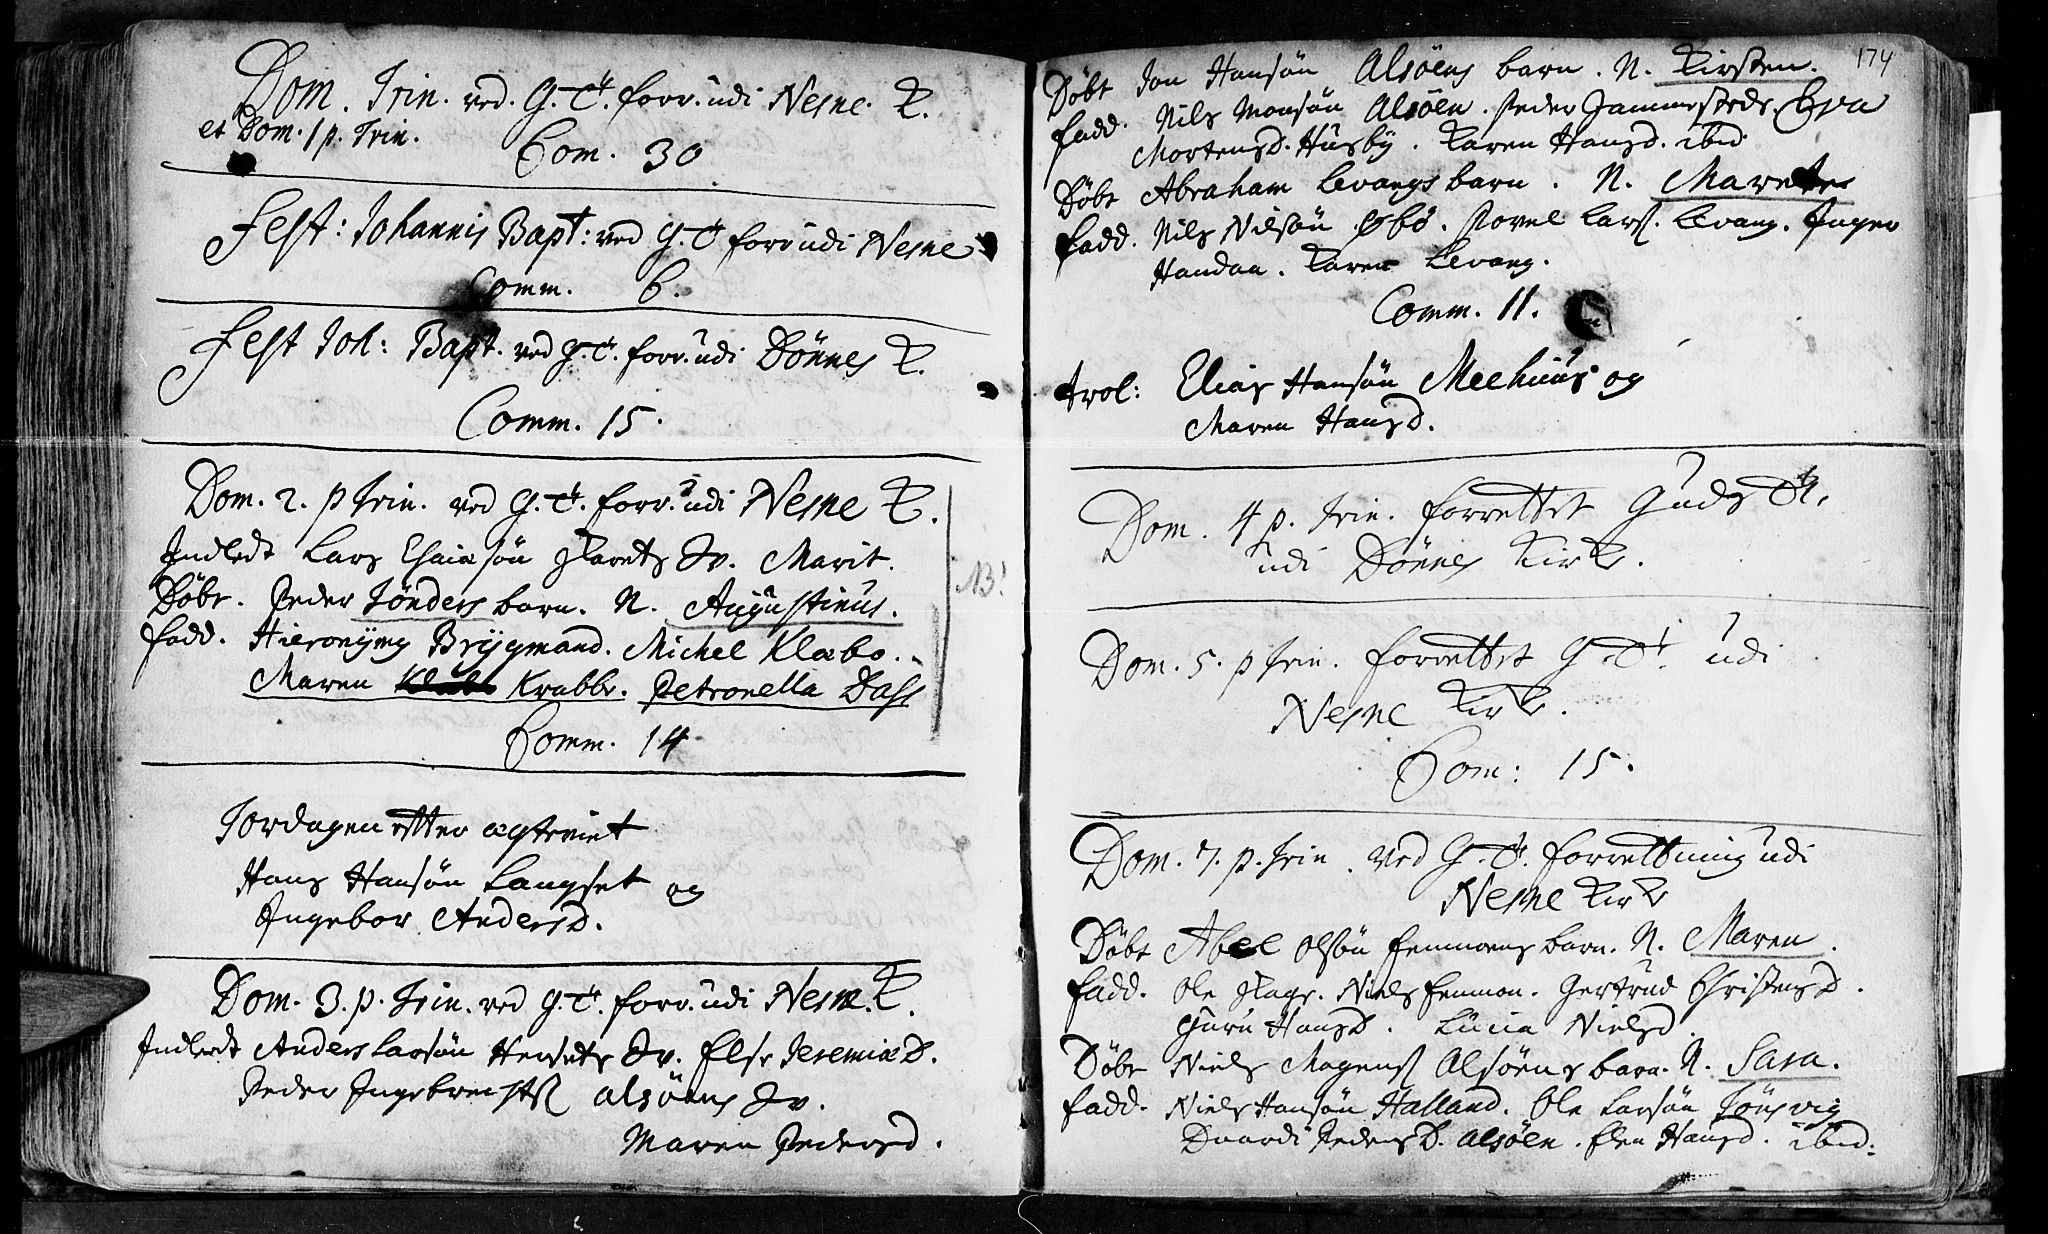 Dom. Trin. ved. G. T. forr. udi Nesne K.
et Dom. 1 p. Trin.
Com. 30
Fest: Johannis Bapt: ved G. T forr udi Nesne
Comm. 6.
Fest Joh: Bapt. ved G. T. forr. udi Dönnes K.
Comm. 15.
Dom. 2. p Trin. ved G. T. forr. udi Nesne K.
Indledt Lars Esaiasön Sv. Marit.
NB!
Döbt. Peder Tönders barn. N. Augustinus.
fadd. Hieronymg Bryggmand. Michel Klabo.
Maren Krabbe. Petronella Dass
Comm. 14
Tordagen efterægteviet
Hans Hansön Langset og
Ingebor Andersd.
Dom. 3. p. Trin. ved G. T. forr. udi Nesne K.
Indledt Anders Larsön Sv. Else Jeremiæd.
Peder Ingebrechtss alsöens Sv.
Maren Pedersd.
174
Döbt Jon Hansön Alsöens barn. N. Kirsten.
fadd. Nils Monsön Alsöen. Peder Eva
Mortensd. Husby. Karen Hansd. ibid
Döbt Abraham Levangs barn. N. Marete
fadd. Nils Nilsön Povel Lars. Levang. Inger
Handaa. Karen Levang.
Comm. 11.
trol: Elias Hansön Meehuus og
Maren Hansd.
Dom. 4 p. Trin. forrettet Guds T.
udi Dönnes Kirke.
Dom. 5. p Trin. forrettet G. T. udi
Nesne Kirke.
Com: 15.
Dom. 7. p. Trin. ved G. T. forrettning udi
Nesne Kirke
Döbt Abel Olsön Femmoens barn. N. Maren.
fadd. Ole Niels Femmon. Gertrud Christensd.
Guru Hansd. Lucia Nielsd.
Döbt Niels Mogenss Alsöens barn. N. Sara.
fadd. Niels Hansön Halland. Ole Larsön Tönsvig
Pedersd. alsöen. Elen Hansd. ibid: